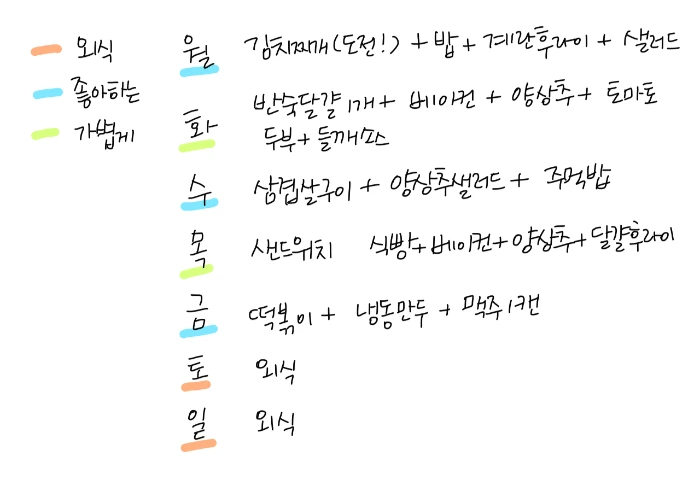 외식
좋아하는
가볍게
월 김치찌개(도전!) + 밥 + 계란후라이 + 샐러드
화 반숙달걀 1개 + 베이컨 + 양상추 + 토마토
두부 + 들깨소스
수 삼겹살구이 + 양상추샐러드 + 주먹밥
목 샌드위치 식빵 + 베이컨 + 양상추 + 달걀후라이
금 떡볶이 + 냉동만두 + 맥주 1캔
토 외식
일 외식